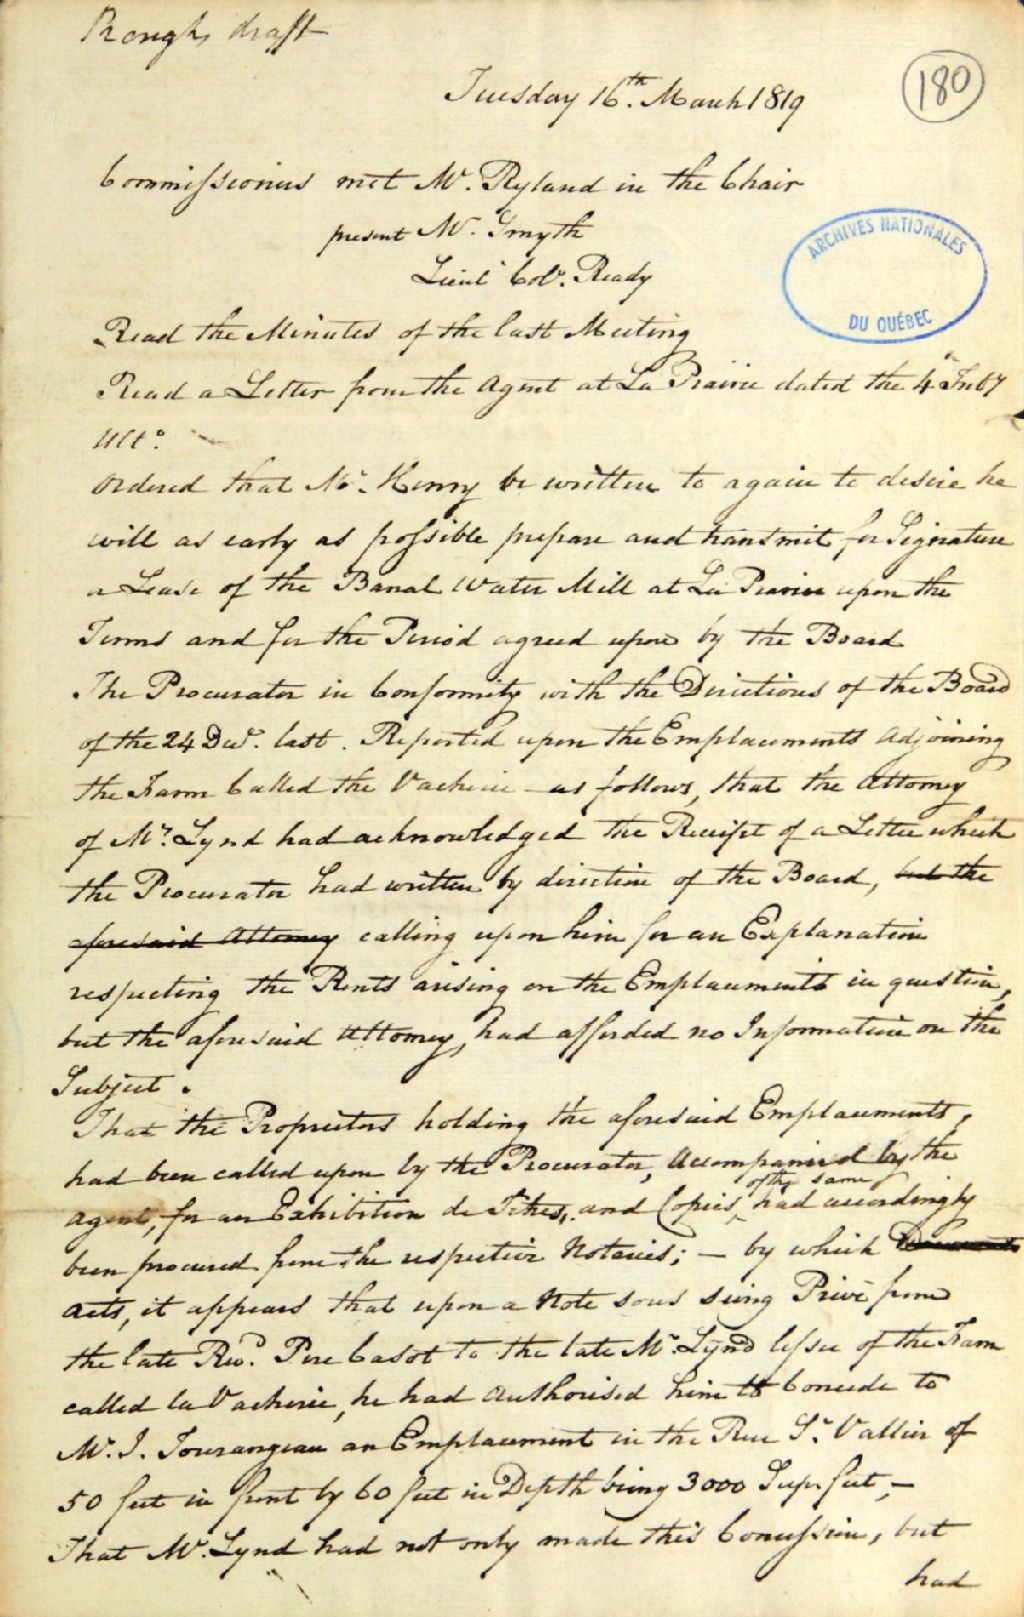 Rough draft
180
Tuesday 16th. March 1819
Commissioners met Mr. Ryland in the Chair
present Mr. Smyth
Lieut Colo. Ready
ARCHIVES NATIONALES
DU QUÉBEC
Read the Minutes of the last Meeting
Read a Letter from the Agent at La Prairie dated the 4th
Ulto.
Ordered that Mr. Henry be written to again to desire he
will as early as possible prepare and transmit for Signature
a Lease of the Banal Water Mill at La Prairie upon the
Terms and for the Period agreed upon by the Board
The Procurator in Conformity with the Directions of the Board
of the 24 Decr. last. Reported upon the Emplacements Adjoining
the Farm Called the Vacherie - as follows, that the Attorney
of Mr. Lynd had acknowledged the Receipt of a Letter which
the Procurator had written by direction of the Board, but the
aforesaid Attorney calling upon him for an Explanation
respecting the Rents arising on the Emplacements in question,
but the aforesaid Attorney, had afforded no Information on the
Subject.
That the Proprietors holding the aforesaid Emplacements,
had been called upon by the Procurator, Accompanied by the
of the same
Agent, for an Exhibition de Titres, and Copies, had accordingly
been procured from the respective Notaries; - by which Documents
Acts, it appears that upon a Note sous Seing Privé from
the late Revd. Pere Casot to the late Mr. Lynd lessee of the Farm
called la Vacherie, he had Authorised him to Concede to
Mr. J. Tourangeau an Emplacement in the Rue St. Vallier of
50 feet in front by 60 feet in Depth being 3000 Sup. feet, -
That Mr. Lynd had not only made this Concession, but
had